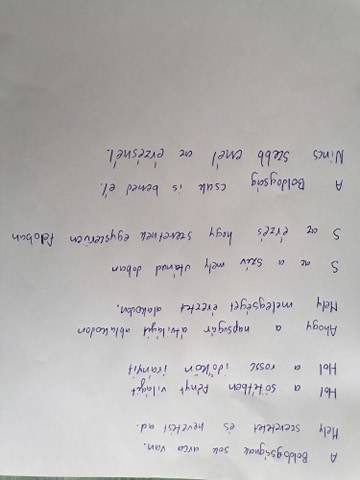 A Boldogságnak sok arca van.
Mely szeretetet és nevetést ad.
Hol a sötétben fényt világít
Hol a rossz időkön irányít
Ahogy a napsugár átvilágít ablakodon
Mely melegséget érzetet alakodon.
S az a szív mely utánad doban
S az érzés hogy szeretnek egyszerűen feloban
A Boldogság csak is benned él.
Nincs szebb ennél az érzésnél.